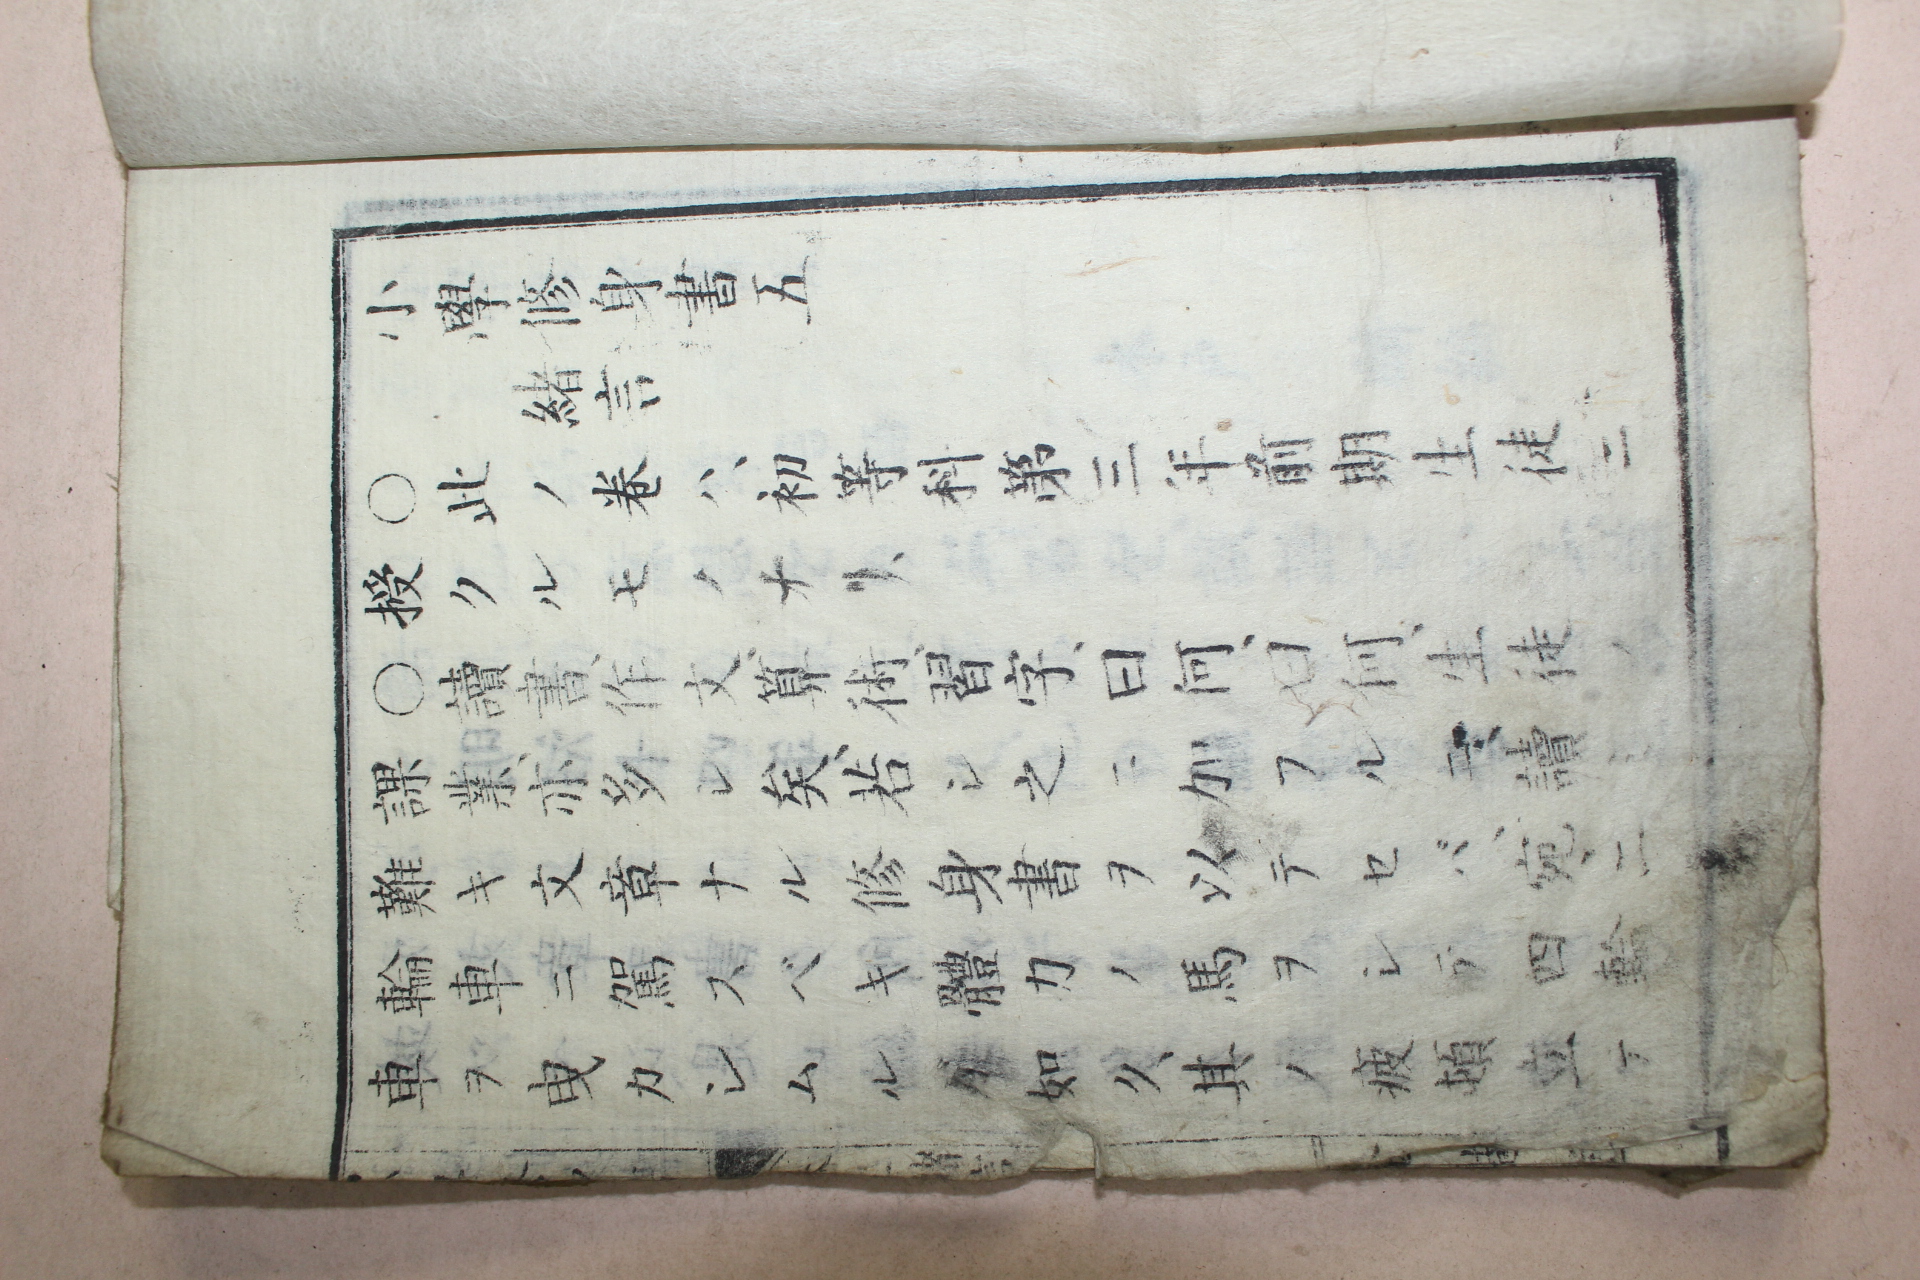 小學修身書五
緒言
○此ノ卷ハ、初等科第三年前期生徒ニ
授クルモノナリ、
○讀書、作文、算術、習字、曰何、曰何、生徒ノ
課業亦多シ矣、若シ之ニ加フルニ、讀
難キ文章ナル修身書ヲ以テセバ、宛ニ
輪車ニ駕スベキ體力ノ馬ヲシテ四輪
車ヲ曳カシムルガ如ク、其ノ疲頓立テ
緒言